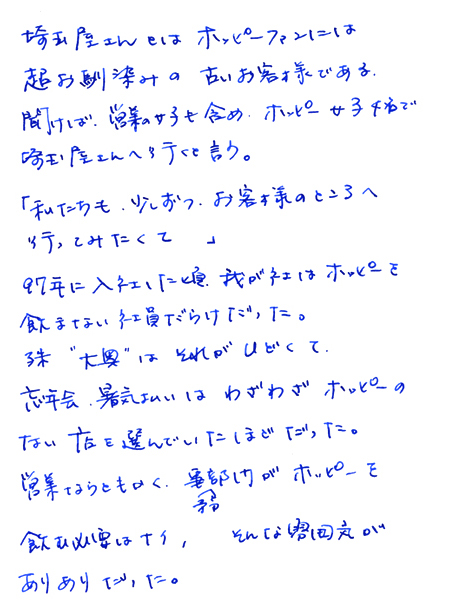 埼玉屋さんとは ホッピーファンには
超お馴染みの 古いお客様である.
聞けば. 営業の女子も含め. ホッピー女子4名で
埼玉屋さんへ行くと言う。
「私たちも.少しずつ.お客様のところへ
行ってみたくて 」
97年に入社した頃. 我が社はホッピーを
飲まない社員だらけだった。
殊 "大奥"は それがひどくて.
忘年会.暑気払いは わざわざ ホッピーの
ない店を選んでいたほどだった。
営業ならともかく. 内が ホッピーを
飲む必要はナイ, そんな雰囲気が
ありありだった。